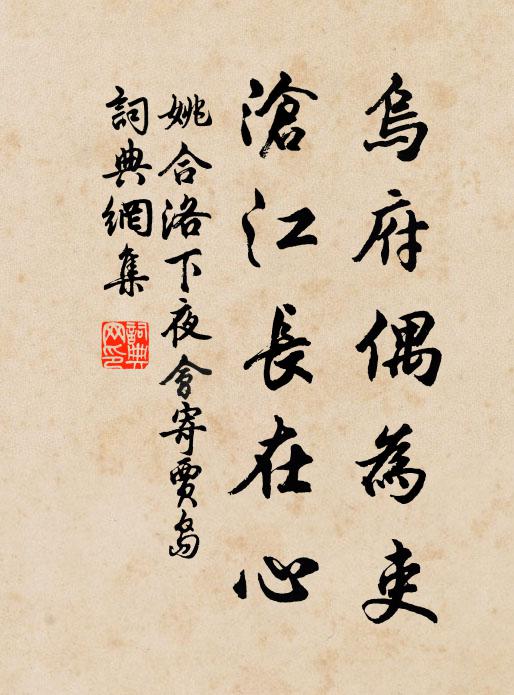 烏府偶為吏
滄江長在心
姚合洛下夜會寄賈島
詞典網集
詞典
网印